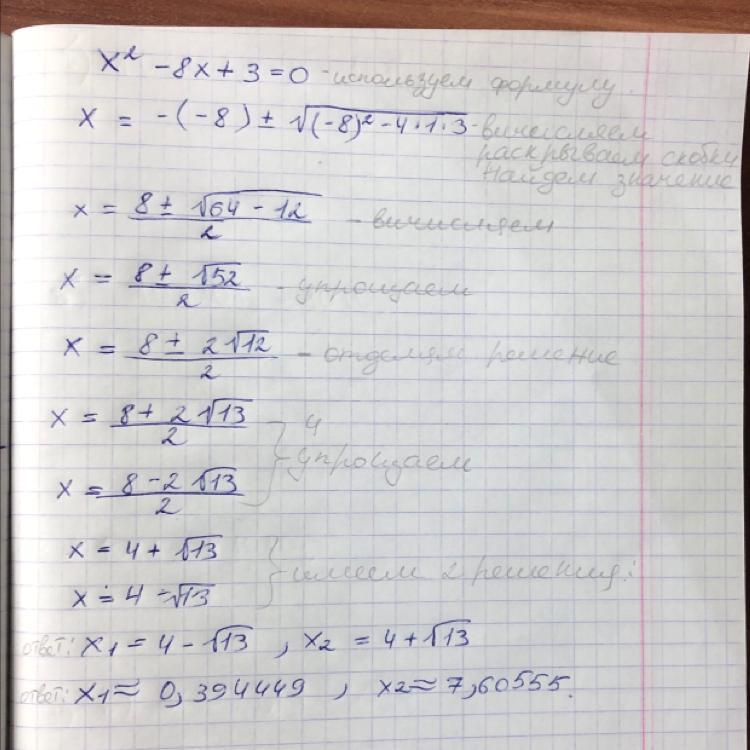 x² - 8x + 3 = 0 - используем формулу.
x = -(-8) ± √(-8)² - 4·1·3 - вичисляем
раскрываем скобку
Найдем значение
x = 8 ± √64 - 12 / 2 - вичисляем
x = 8 ± √52 / 2 - упрощаем
x = 8 ± 2√12 / 2 - отделяям решение
x = 8 + 2√13 / 2 } и
упрощаем
x = 8 - 2√13 / 2
x = 4 + √13 } имеем 2 решения:
x = 4 - √13
ответ: x₁ = 4 - √13 , x₂ = 4 + √13
ответ: x₁ ≈ 0,394449 , x₂ ≈ 7,60555.